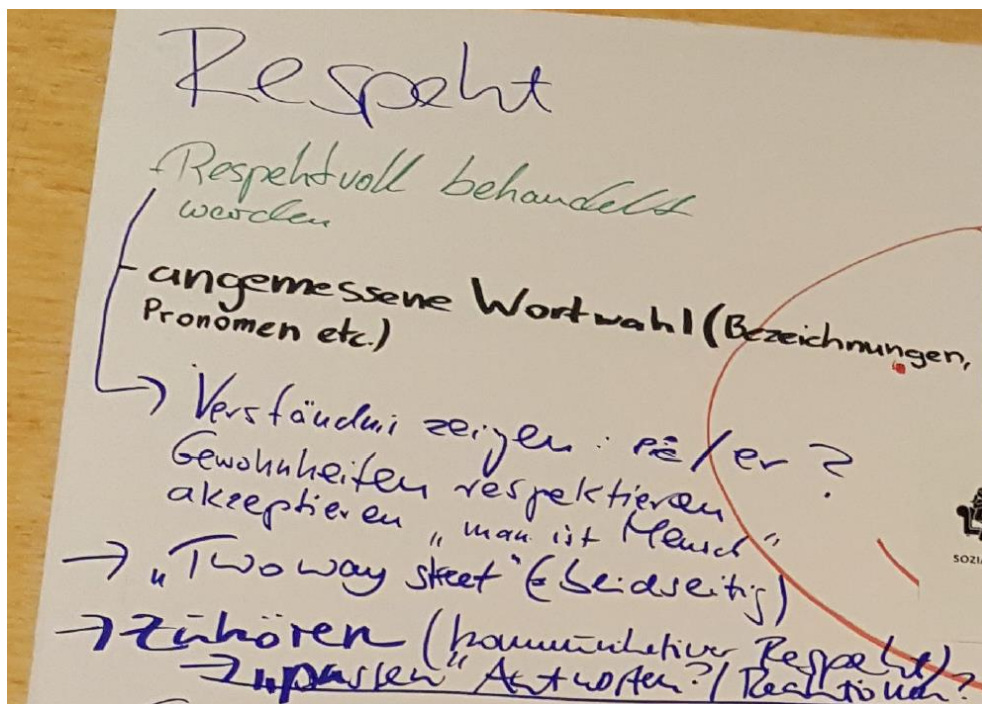 Respekt
- Respektvoll behandelt
werden
- angemessene Wortwahl (Bezeichnungen,
Pronomen etc.)
→ Verständni zeigen : sie/er ?
Gewohnheiten respektieren
akzeptieren „man ist Mensch"
→ „Two way street" (beidseitig)
→ Zuhören (kommunikativer Respekt)
→ „passen" Antworten? / Reaktionen?
SOZIA